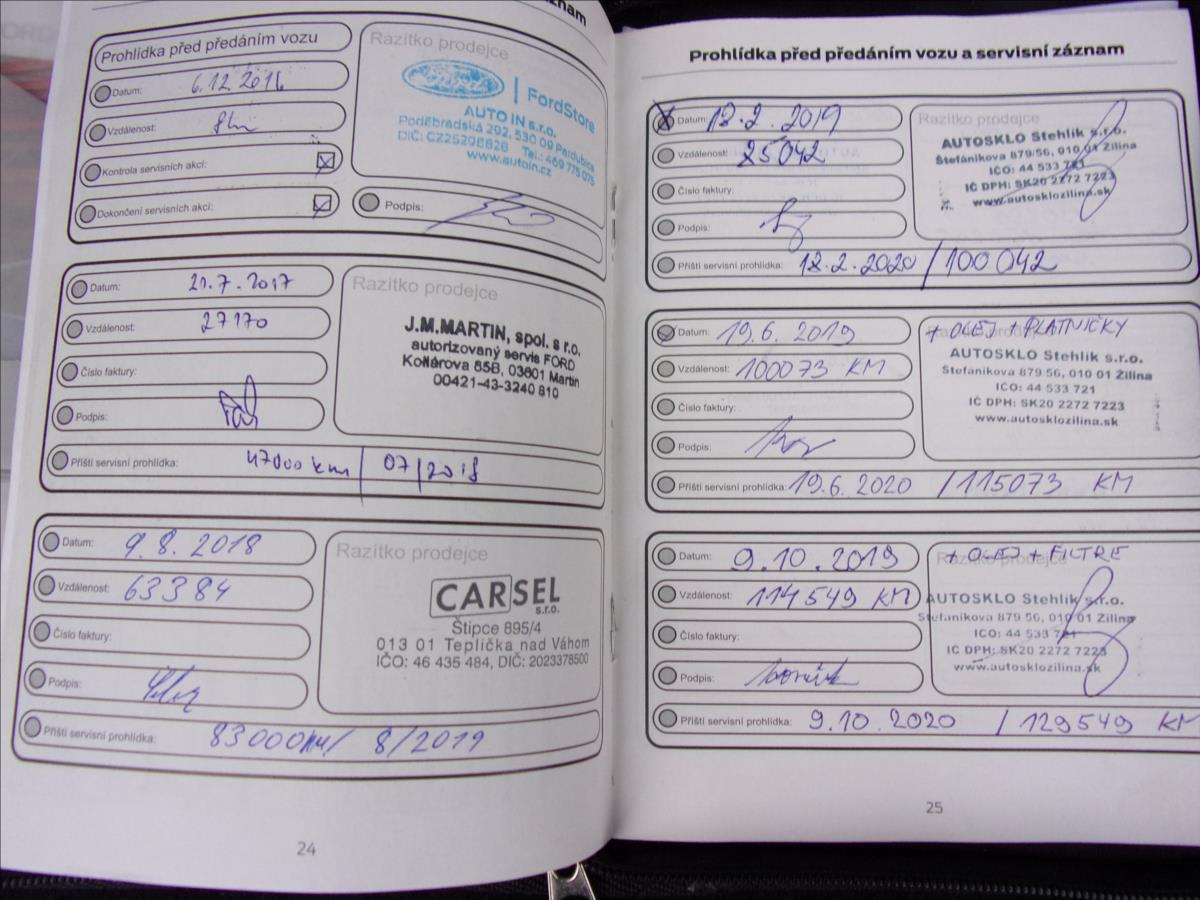 znam
Prohlídka před předáním vozu
Datum: 6.12 2016
Vzdálenost:
Kontrola servisních akcí:
Dokončení servisních akcí:
Razítko prodejce
Ford | FordStore
AUTO IN s.r.o.
Poděbradská 292, 530 09 Pardubice
DIČ: CZ25298828 Tel.: 469 775 075
www.autoin.cz
Podpis:
Datum: 21.7.2017
Vzdálenost: 27170
Číslo faktury:
Podpis:
Příští servisní prohlídka: 47000 km / 07/2018
Razítko prodejce
J.M.MARTIN, spol. s r.o.
autorizovaný servis FORD
Kollárova 85B, 03601 Martin
00421-43-3240 810
Datum: 9.8.2018
Vzdálenost: 63384
Číslo faktury:
Podpis:
Příští servisní prohlídka: 83000KM/ 8/2019
Razítko prodejce
CARSEL
s.r.o.
Štipce 895/4
013 01 Teplička nad Váhom
IČO: 46 435 484, DIČ: 2023378500
24
Prohlídka před předáním vozu a servisní záznam
Datum: 18.2.2019
Vzdálenost:
Číslo faktury:
Podpis:
Příští servisní prohlídka: 18.2.2020 /100042
Razítko prodejce
AUTOSKLO Stehlík s.r.o.
Štefánikova 879/56, 010 01 Žilina
IČO: 44 533 721
IČ DPH: SK20 2272 7223
www.autosklozilina.sk
Datum: 19.6.2019
Vzdálenost: 100073 KM
Číslo faktury:
Podpis:
Příští servisní prohlídka: 19.6.2020 /115073 KM
+ OLEJ + PLATNIČKY
AUTOSKLO Stehlík s.r.o.
Štefánikova 879 56, 010 01 Žilina
IČO: 44 533 721
IČ DPH: SK20 2272 7223
www.autosklozilina.sk
Datum: 9.10.2019
Vzdálenost: 114549 KM
Číslo faktury:
Podpis:
Příští servisní prohlídka: 9.10.2020 /129549 KM
+ OLEJ + FILTRE
Razítko prodejce
AUTOSKLO Stehlík s.r.o.
Štefánikova 879 56, 010 01 Žilina
IČO: 44 533 721
IČ DPH: SK20 2272 7223
www.autosklozilina.sk
25